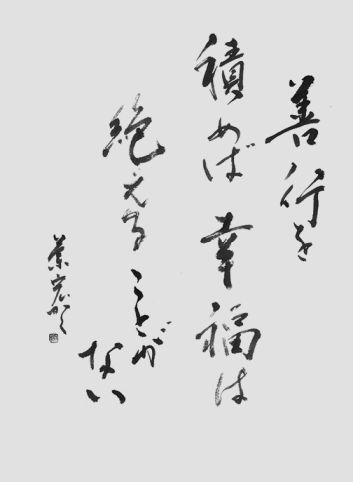 善行を
積めば 幸福は
絶える ことが
ない